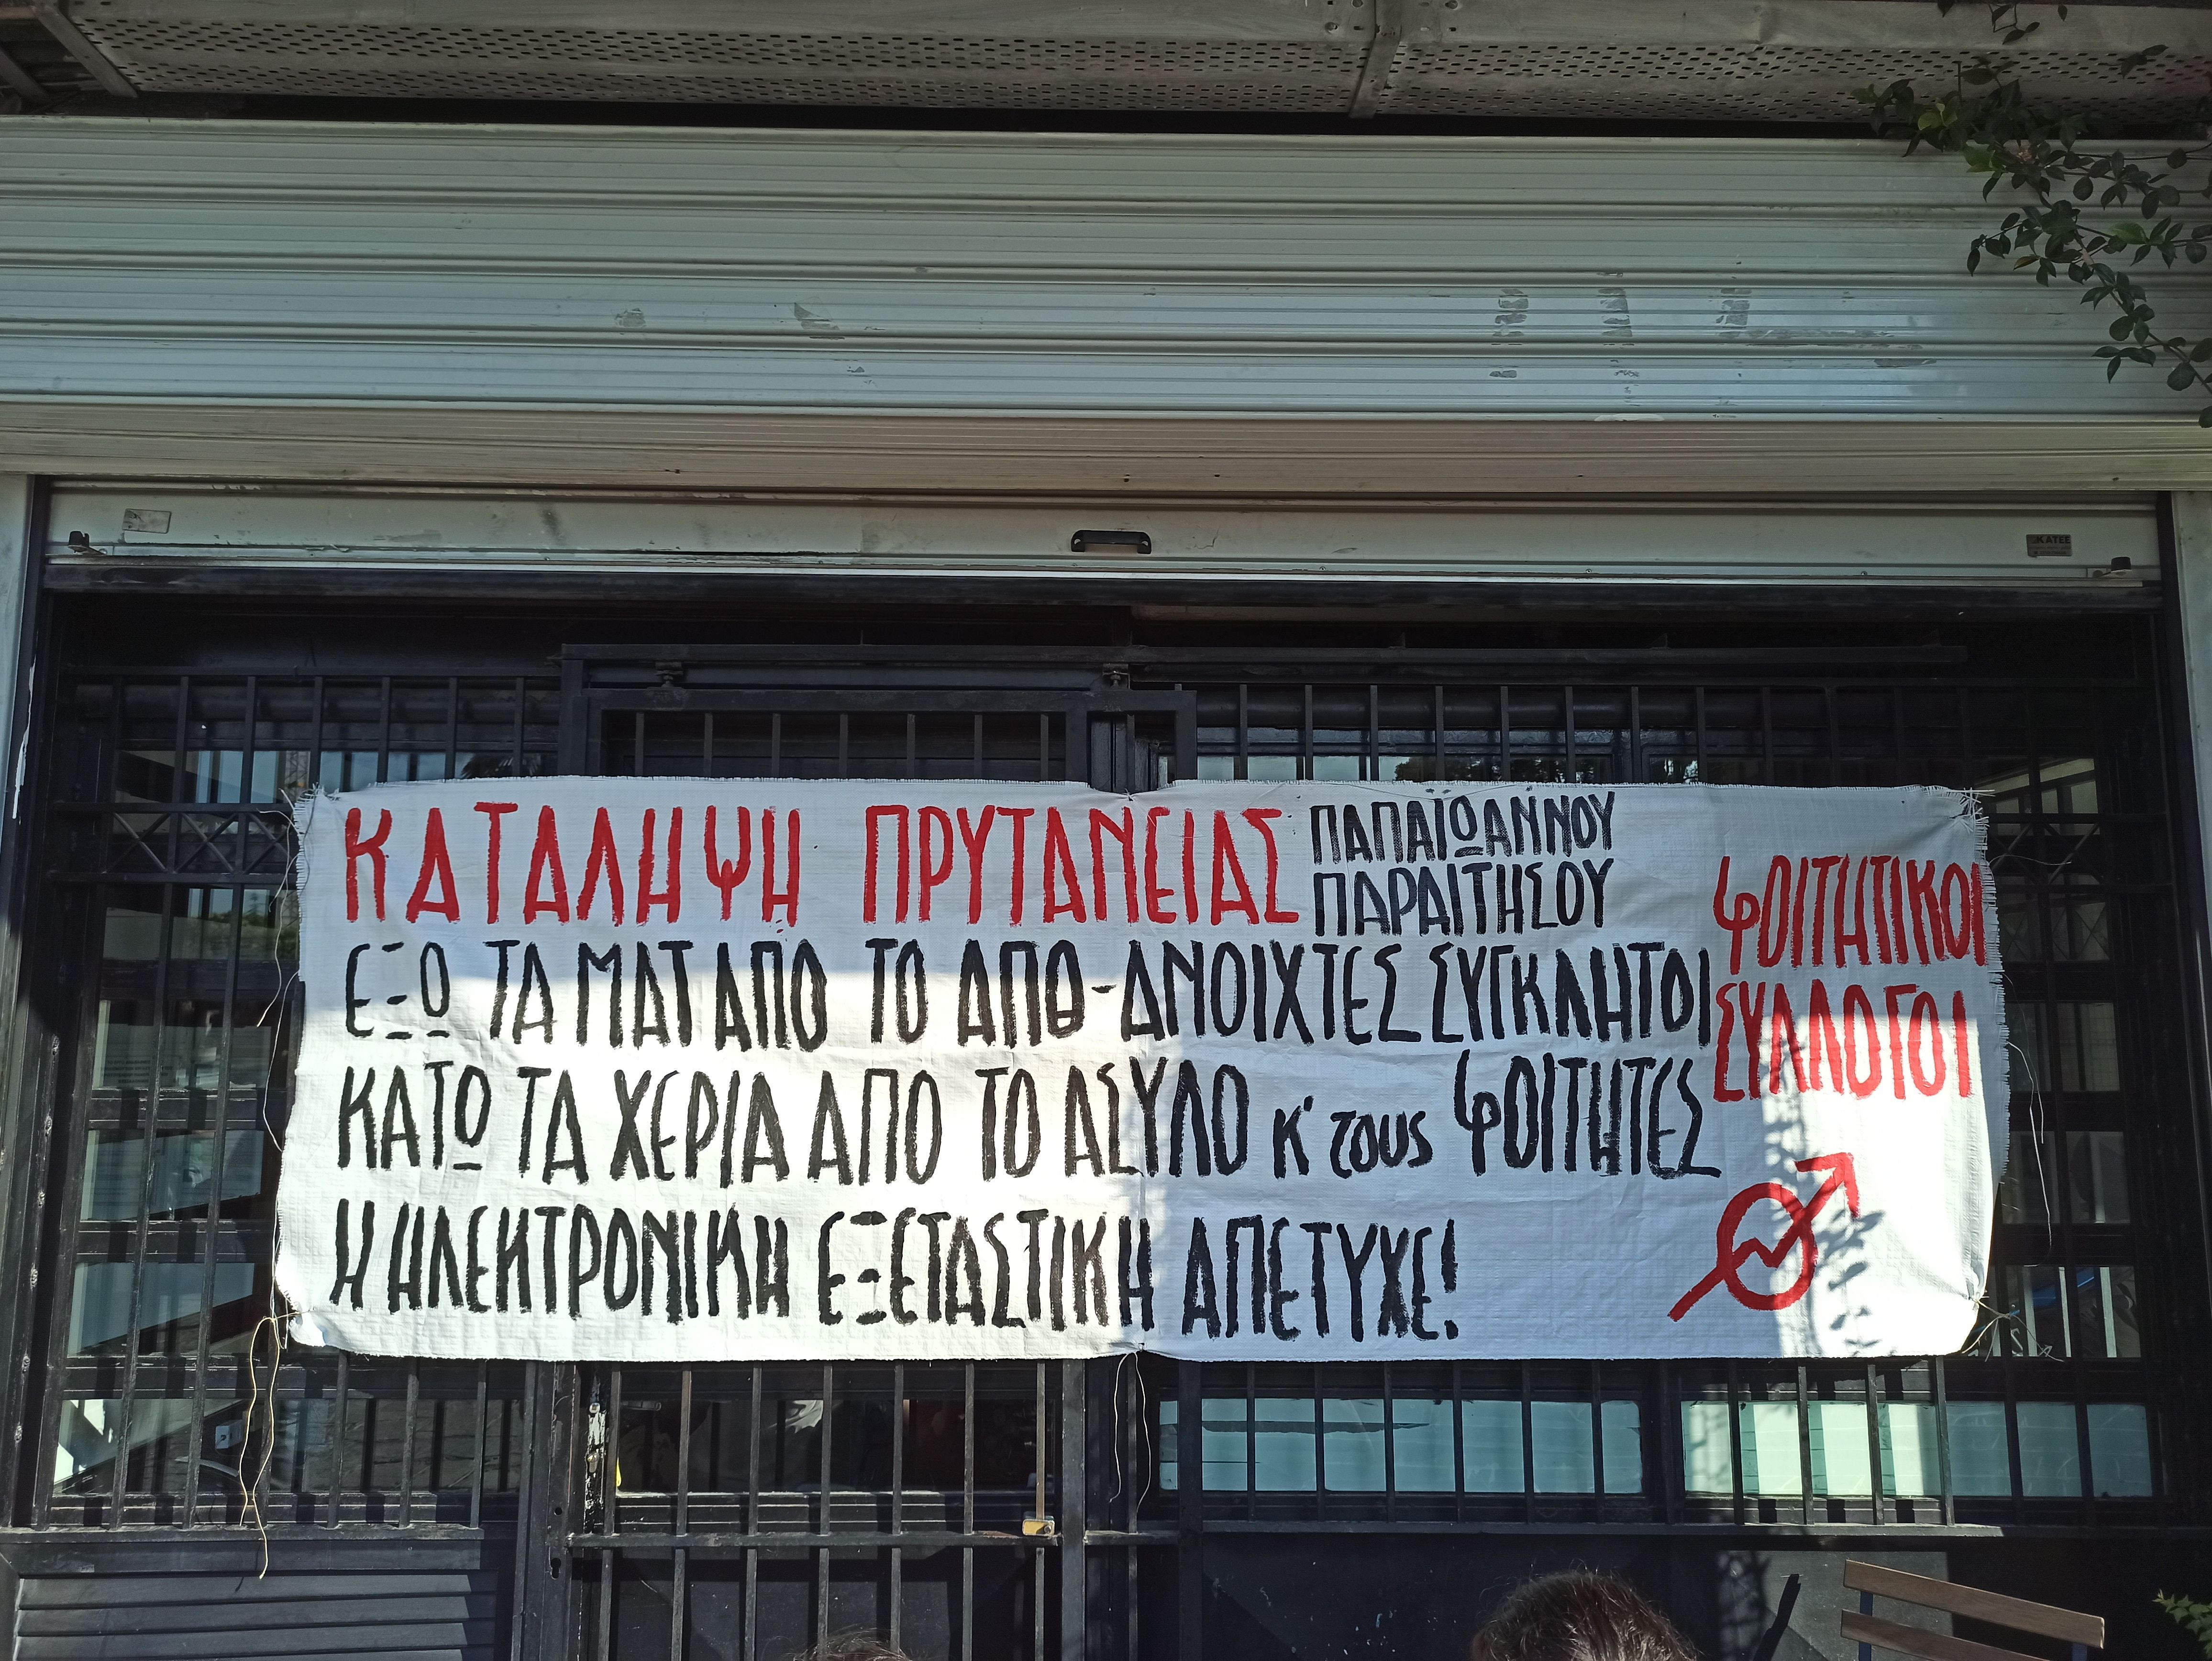 ΚΑΤΑΛΗΨΗ ΠΡΥΤΑΝΕΙΑΣ
ΠΑΠΑΪΩΑΝΝΟΥ
ΠΑΡΑΙΤΗΣΟΥ
ΕΞΩ ΤΑ ΜΑΤ ΑΠΟ ΤΟ ΑΠΘ-ΑΝΟΙΧΤΕΣ ΣΥΓΚΛΗΤΟΙ
ΚΑΤΩ ΤΑ ΧΕΡΙΑ ΑΠΟ ΤΟ ΑΣΥΛΟ Κ' τους ΦΟΙΤΗΤΕΣ
Η ΗΛΕΚΤΡΟΝΙΚΗ ΕΞΕΤΑΣΤΙΚΗ ΑΠΕΤΥΧΕ!
ΦΟΙΤΗΤΙΚΟΙ
ΣΥΛΛΟΓΟΙ